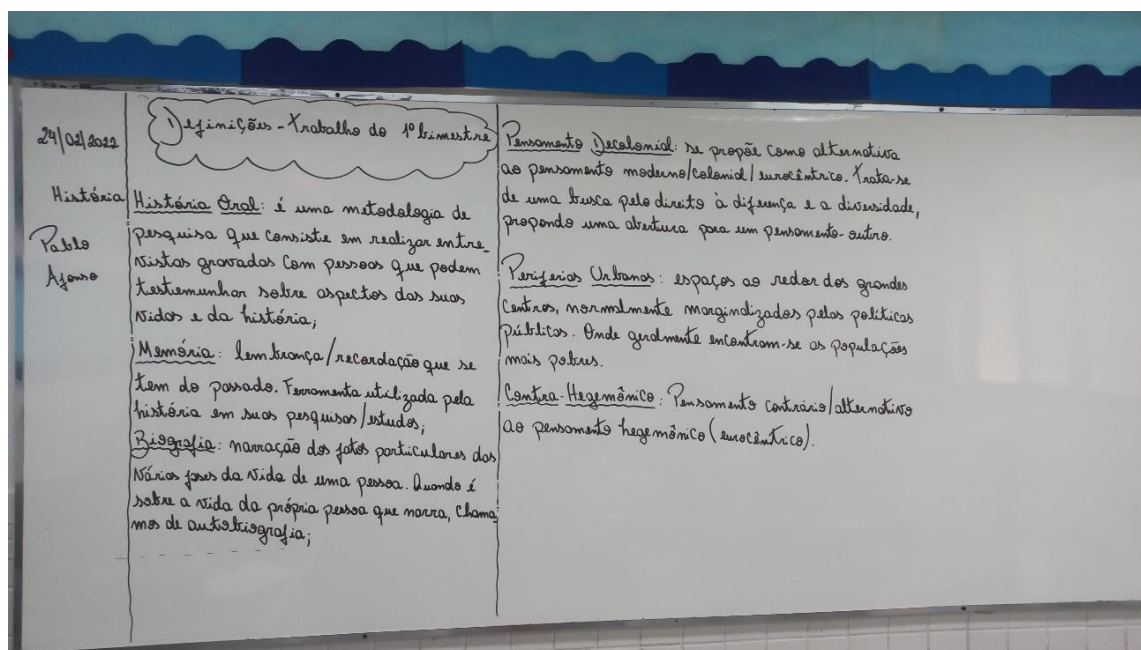 24/02/2022
História
Pablo
Afonso
Definições - Trabalho do 1º bimestre
História Oral: é uma metodologia de
pesquisa que consiste em realizar entre-
vistas gravadas com pessoas que podem
testemunhar sobre aspectos das suas
vidas e da história;
Memória: lembrança/recordação que se
tem do passado. Ferramenta utilizada pela
história em suas pesquisas/estudos;
Biografia: narração dos fatos particulares das
várias fases da vida de uma pessoa. Quando é
sobre a vida da própria pessoa que narra, chama-
mos de autobiografia;
Pensamento Decolonial: se propõe como alternativa
ao pensamento moderno/colonial/eurocêntrico. Trata-se
de uma busca pelo direito à diferença e a diversidade,
propondo uma abertura para um pensamento-outro.
Periferias Urbanas: espaços ao redor dos grandes
centros, normalmente marginalizados pelas políticas
públicas. Onde geralmente encontram-se as populações
mais pobres.
Contra-Hegemônico: Pensamento contrário/alternativo
ao pensamento hegemônico (eurocêntrico).